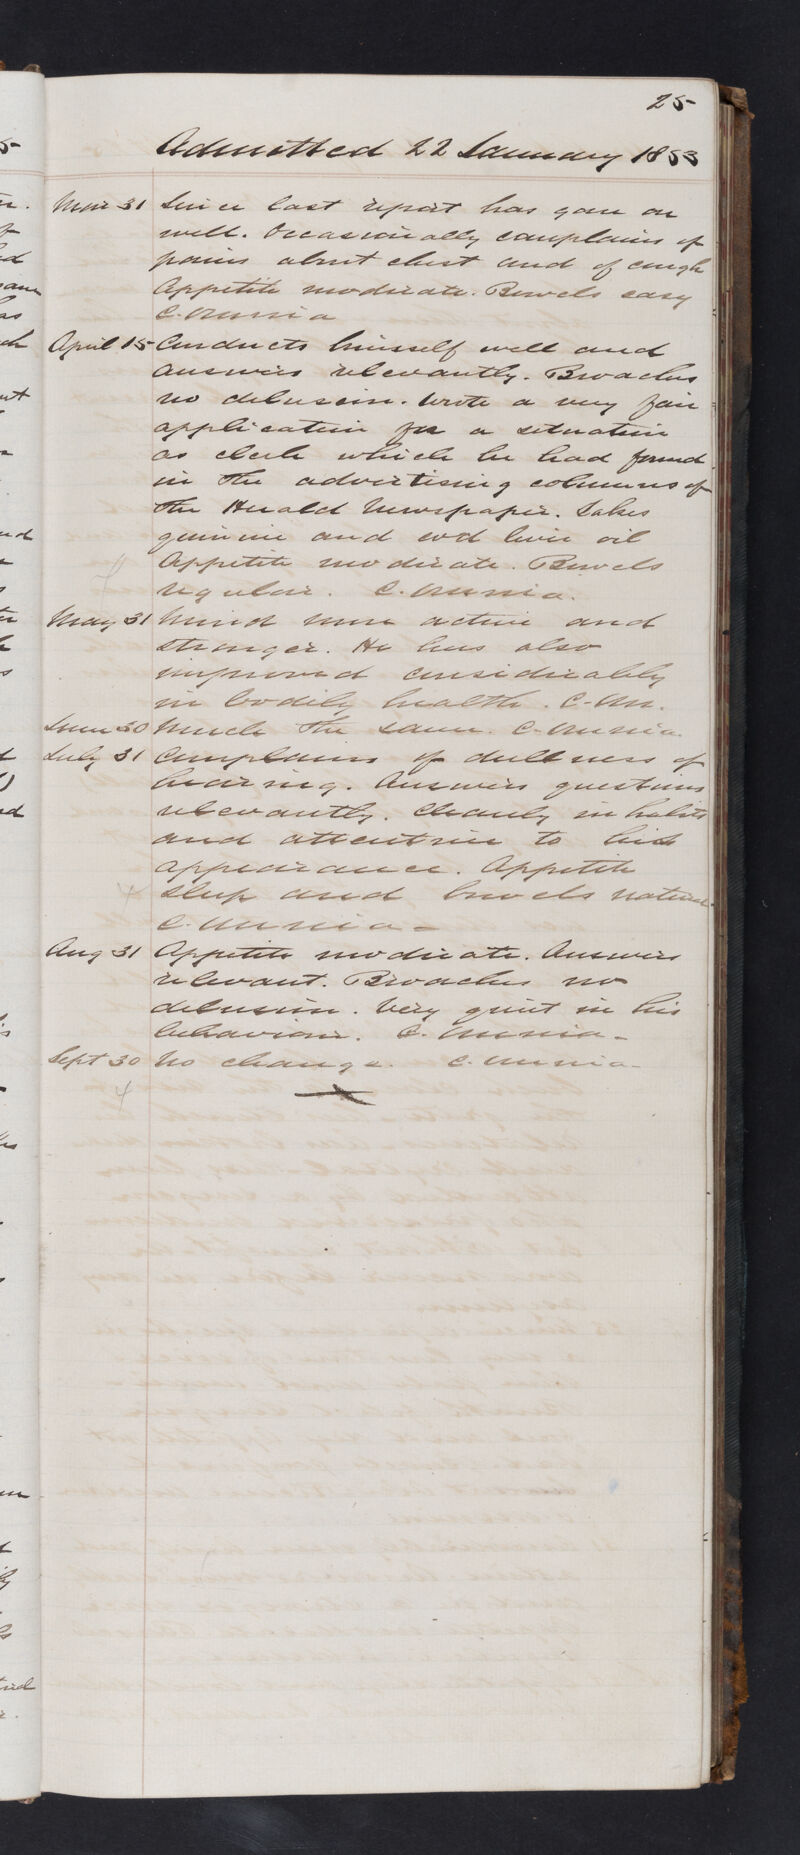 25
Admitted 22 January 1853
Mar 31 Since last report has gone on
well. Occasionally complains of
pains about chest and of cough
Appetite moderate. Bowels easy
April 15 Conducts himself well and
answers relevantly. Broaches
no delusion. Wrote a very fair
application for a situation
as clerk which he had found
in the advertising columns of
the Herald Newspaper. Takes
quinine and cod liver oil
Appetite moderate. Bowels
regular.
May 31 Mind more active and
stronger. He has also
improved considerably
in bodily health.
June 30 Much the same.
July 31 Complains of dullness of
hearing. Answers questions
relevantly. Cleanly in habits
and attentive to his
appearance. Appetite
sleep and bowels natural
Aug 31 Appetite moderate. Answers
relevant. Broaches no
delusion. Very quiet in his
behaviour.
Sept 30 No change.